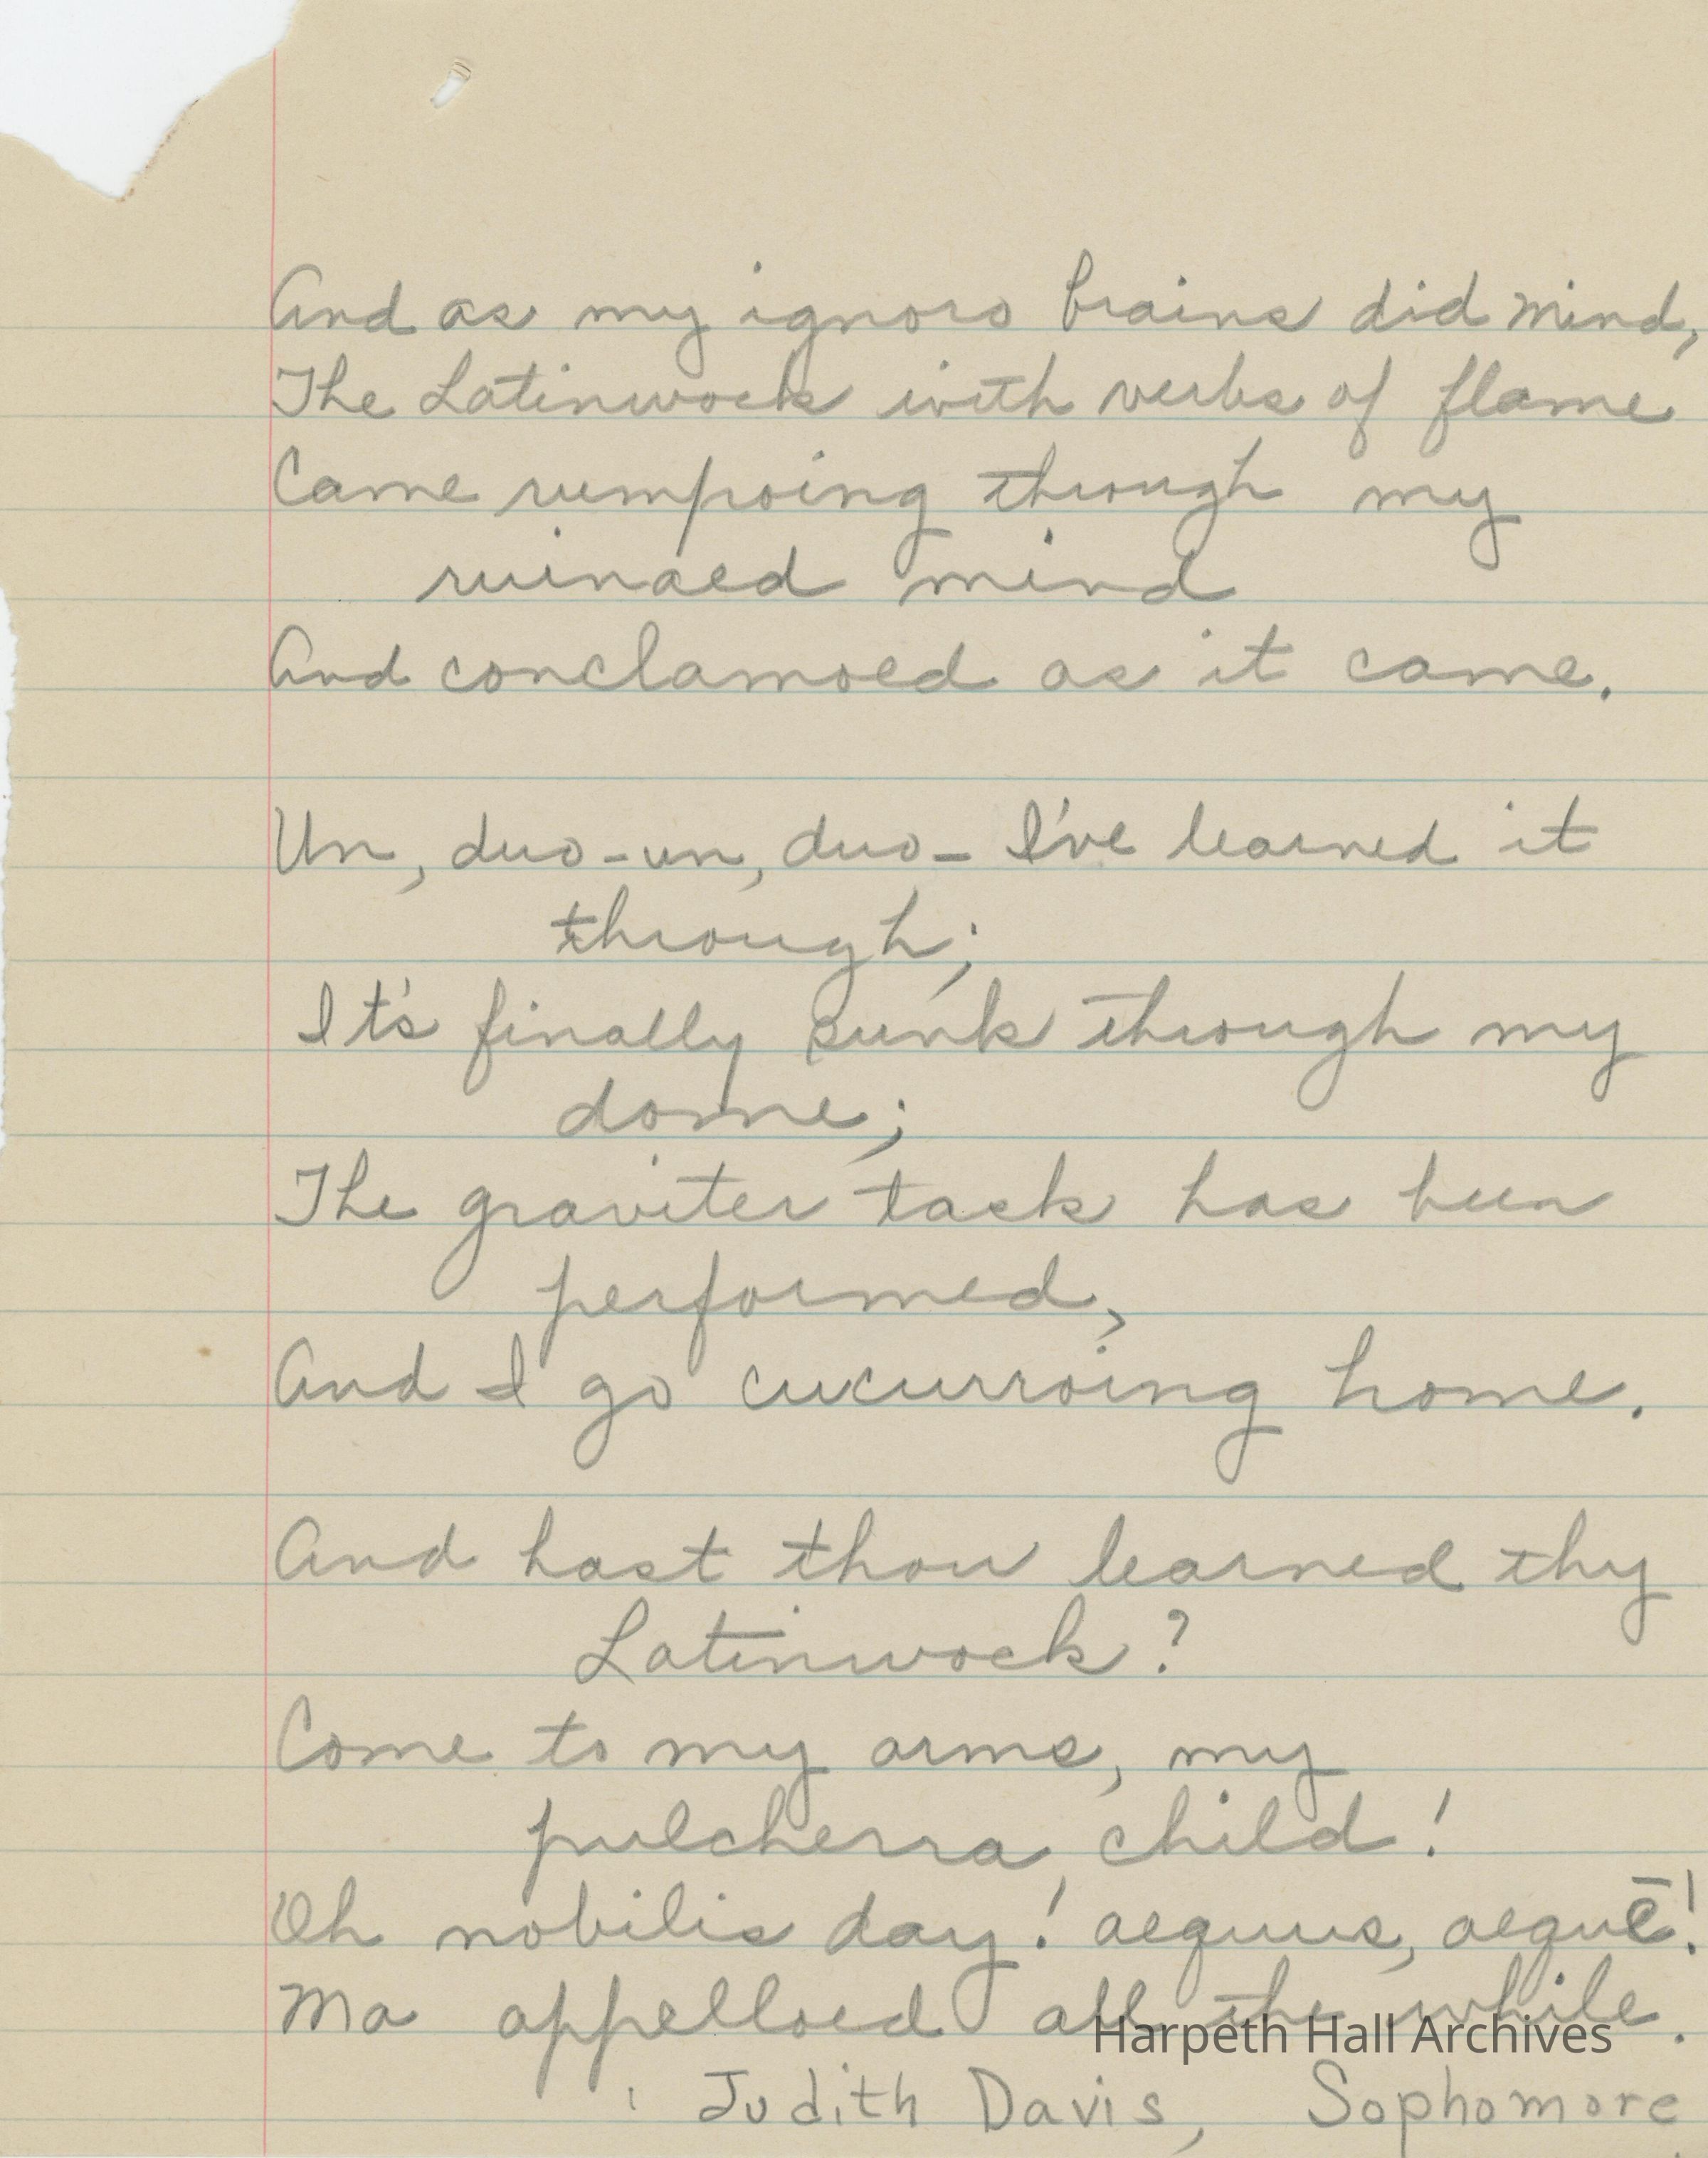 And as my ignoro brains did mind,
The Latinwock with verbs of flame
Came rumpoing through my
ruinaed mind
And conclamoed as it came.
Un, duo-un, duo- I've learned it
through;
It's finally sunk through my
dome;
The graviter task has been
performed,
And I go cucurroing home.
And hast thou learned thy
Latinwock?
Come to my arms, my
pulcherra, child!
Oh nobilis day! aequus, aequē!
Ma appelloed all the while.
Harpeth Hall Archives
Judith Davis, Sophomore